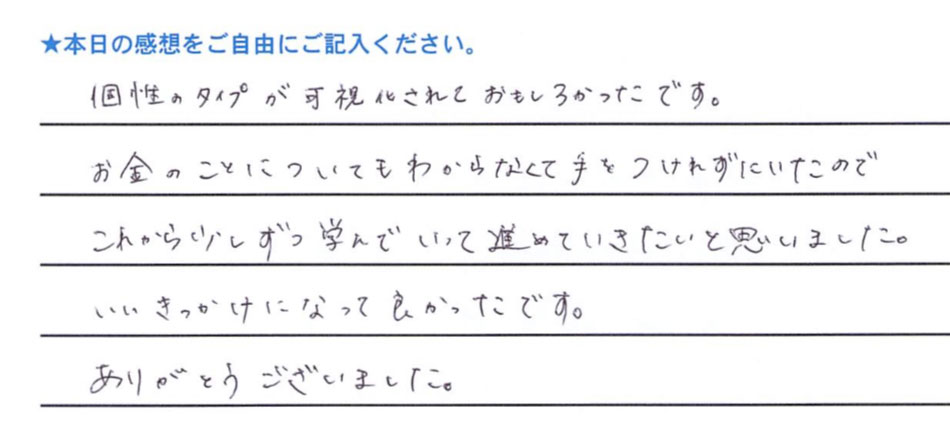 ★本日の感想をご自由にご記入ください。
個性のタイプが可視化されておもしろかったです。
お金のことについてもわからなくて手をつけれずにいたので
これから少しずつ学んでいって進めていきたいと思いました。
いいきっかけになって良かったです。
ありがとうございました。